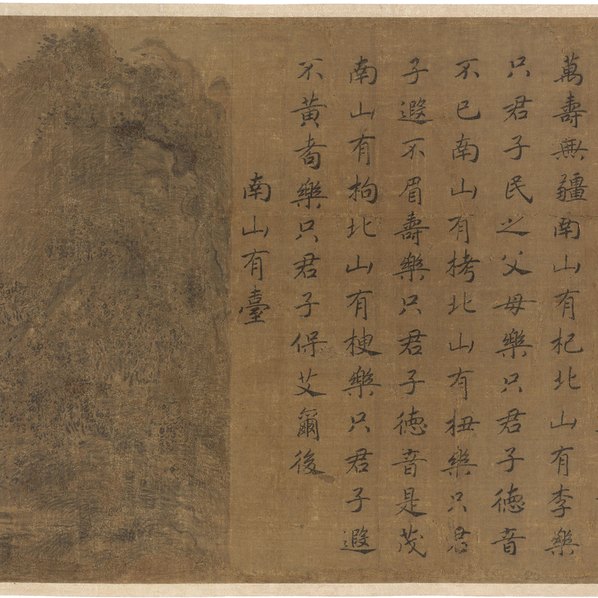 萬壽無疆南山有杞北山有李樂
只君子民之父母樂只君子德音
不已南山有栲北山有杻樂只君
子遐不眉壽樂只君子德音是茂
南山有枸北山有楰樂只君子遐
不黃耇樂只君子保艾爾後
南山有臺